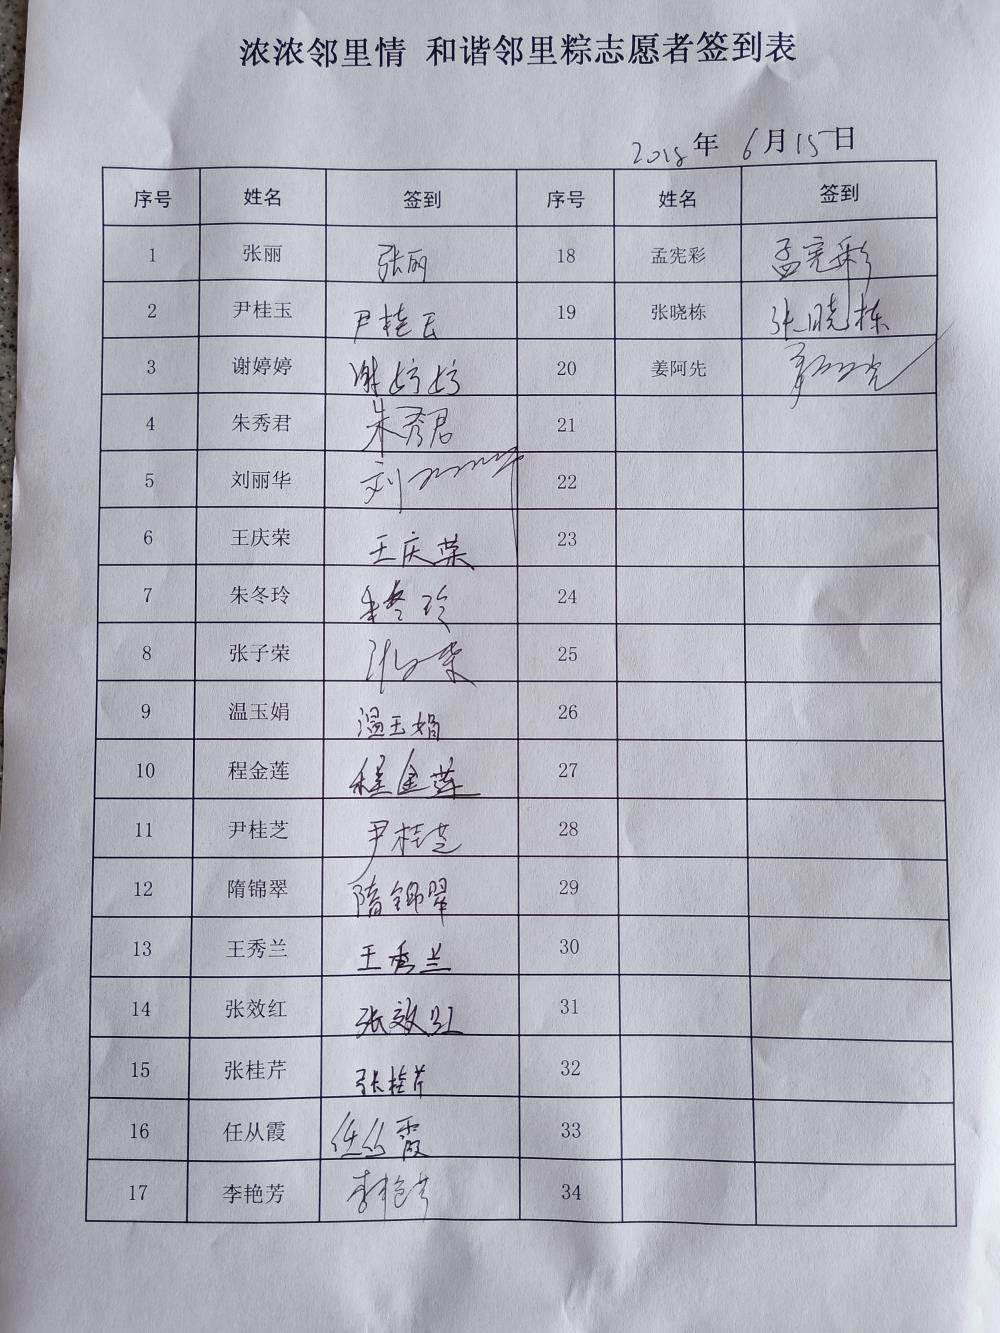 浓浓邻里情 和谐邻里粽志愿者签到表
2018年 6月15日
序号 姓名 签到 序号 姓名 签到
1 张丽 张丽 18 孟宪彩 孟宪彩
2 尹桂玉 尹桂玉 19 张晓栋 张晓栋
3 谢婷婷 谢婷婷 20 姜阿先
4 朱秀君 朱秀君 21
5 刘丽华 刘 22
6 王庆荣 王庆荣 23
7 朱冬玲 朱冬玲 24
8 张子荣 张子荣 25
9 温玉娟 温玉娟 26
10 程金莲 程金莲 27
11 尹桂芝 尹桂芝 28
12 隋锦翠 隋锦翠 29
13 王秀兰 王秀兰 30
14 张效红 张效红 31
15 张桂芹 张桂芹 32
16 任从霞 任从霞 33
17 李艳芳 李艳芳 34